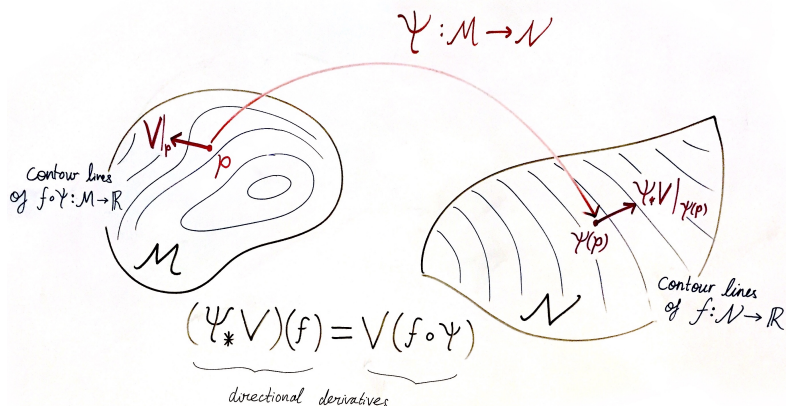 Ψ : M → N
V|ₚ
p
Contour lines
of f∘Ψ : M → ℝ
M
Ψ⁎V|Ψ(p)
Ψ(p)
Contour lines
of f : N → ℝ
N
(Ψ⁎V)(f) = V(f∘Ψ)
directional derivatives